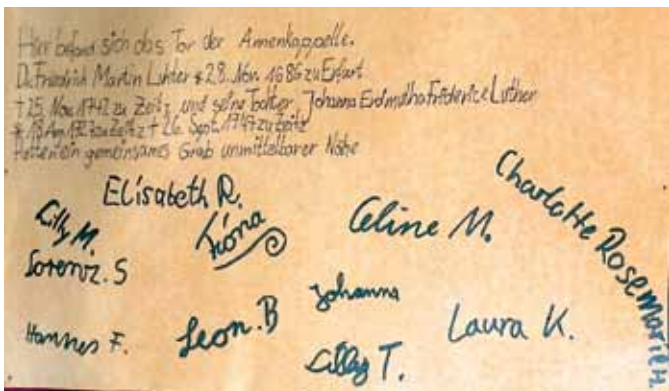 Hier befand sich das Tor der Annenkappelle.
Dr. Friedrich Martin Luther * 28. Nov. 1686 zu Erfurt
† 25. Nov. 1742 zu Zeitz und seine Tochter Johanna Erdmutha Friderice Luther
zu Zeitz † 26. Sept. 1747 zu Zeitz
Hatten ein gemeinsames Grab unmittelbarer Nähe
Elisabeth R.
Charlotte Rosemarith
Lilly M.
Fióna
Celine M.
Lorenz. S
Johanna
Hannes F.
Leon. B
Laura K.
Lilly T.